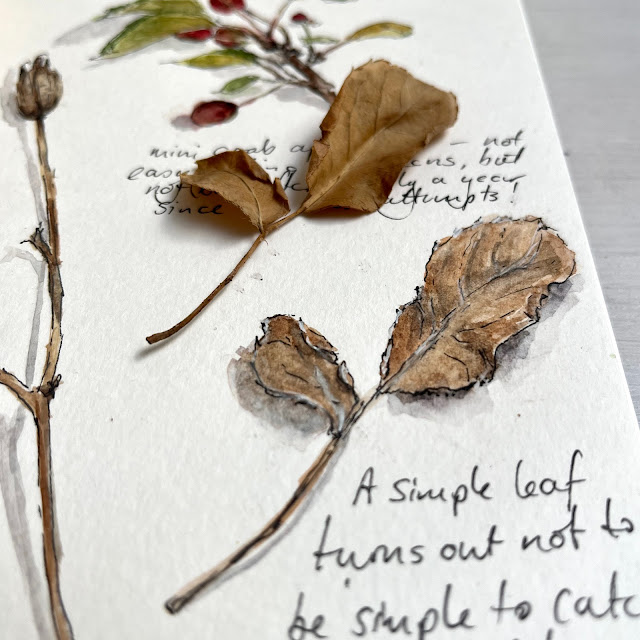 mini crab a — not
eas ns, but
not a year
since attempts!
A simple leaf
turns out not to
be simple to catc